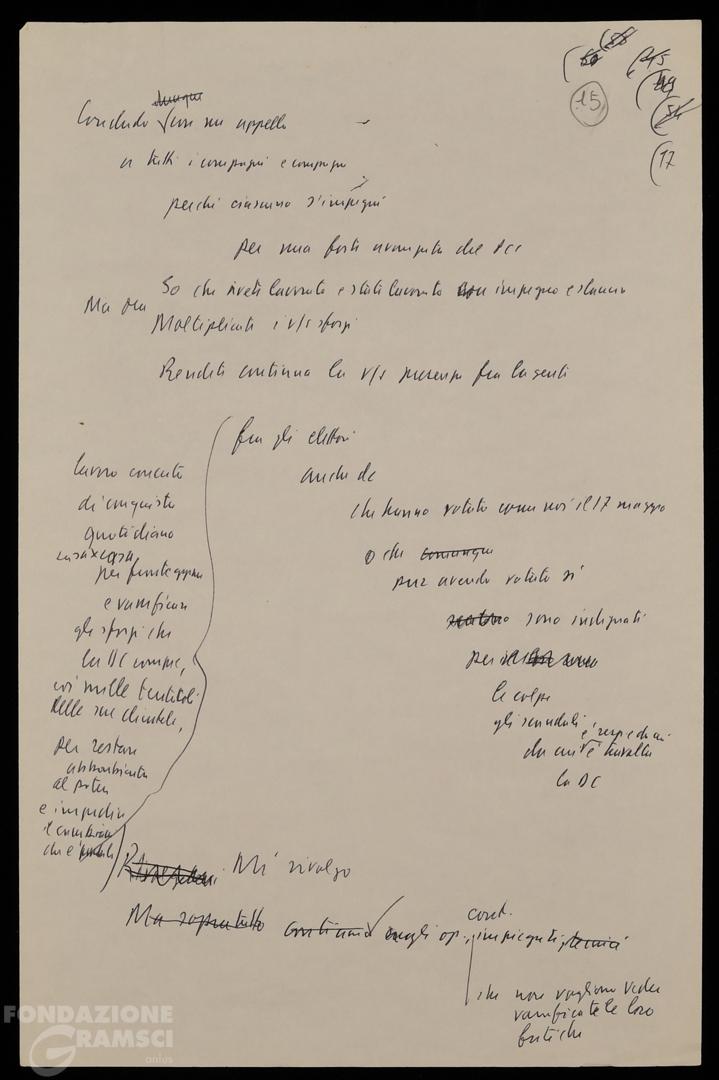 15
17
dunque
Concludo con un appello
a tutti i compagni e compagne
perché ciascuno s'impegni
per una forte avanzata del PCI
So che avete lavorato e state lavorando con impegno e slancio
Ma ora
Moltiplicate i v/s sforzi
Rendete continua la v/s presenza fra la gente
fra gli elettori
anche dc
che hanno votato come noi il 17 maggio
o che comunque
pur avendo votato sì
sono indignati
per
le colpe
gli scandali
da cui è travolta
la DC
lavoro concreto
di conquista
quotidiano
casa x casa,
per fronteggiare
e vanificare
gli sforzi che
la DC compie,
coi mille tentacoli
delle sue clientele,
per restare
abbarbicata
al potere
e impedire
il cambiamento
che è
Mi rivolgo
Ma soprattutto continua agli op., cont. impiegati, tecnici
che non vogliono veder
vanificate le loro
fatiche
FONDAZIONE
GRAMSCI
onlus